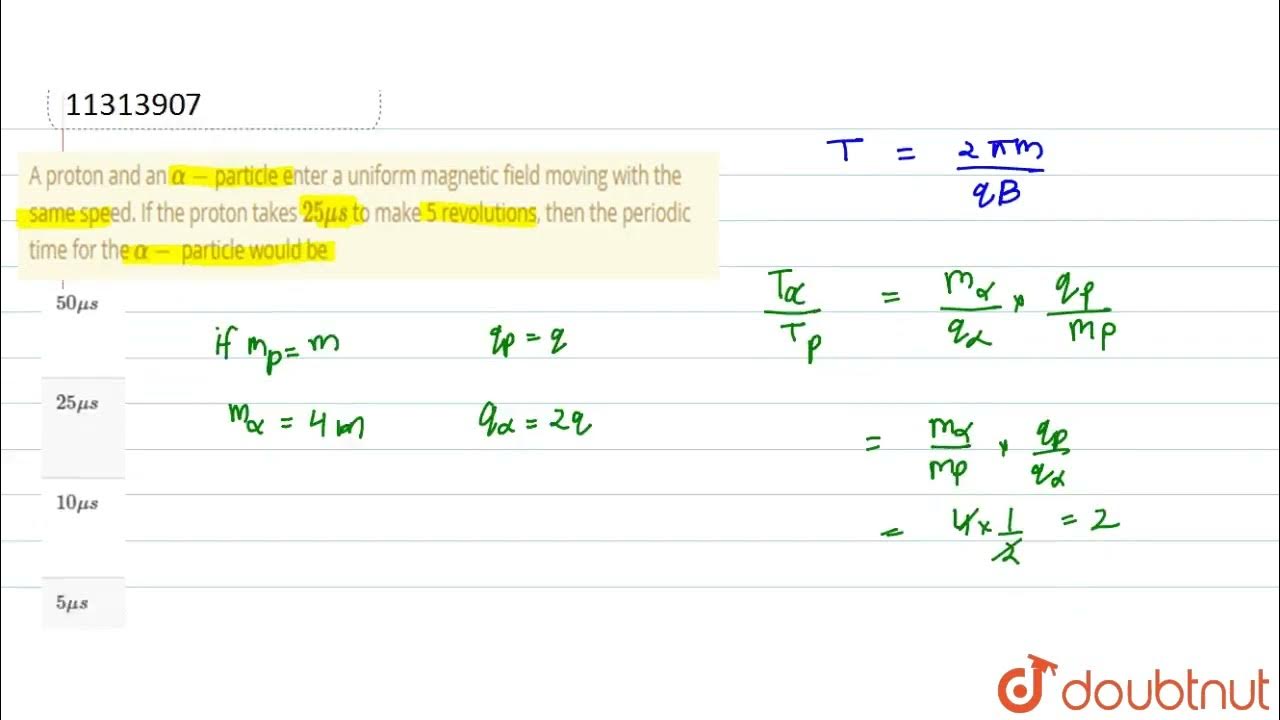 11313907
A proton and an α − particle enter a uniform magnetic field moving with the
same speed. If the proton takes 25μs to make 5 revolutions, then the periodic
time for the α − particle would be
50μs
25μs
10μs
5μs
if mp = m qp = q
mα = 4m qα = 2q
T = 2πm / qB
Tα / Tp = mα / qα × qp / mp
= mα / mp × qp / qα
= 4 × 1 / 2 = 2
doubtnut